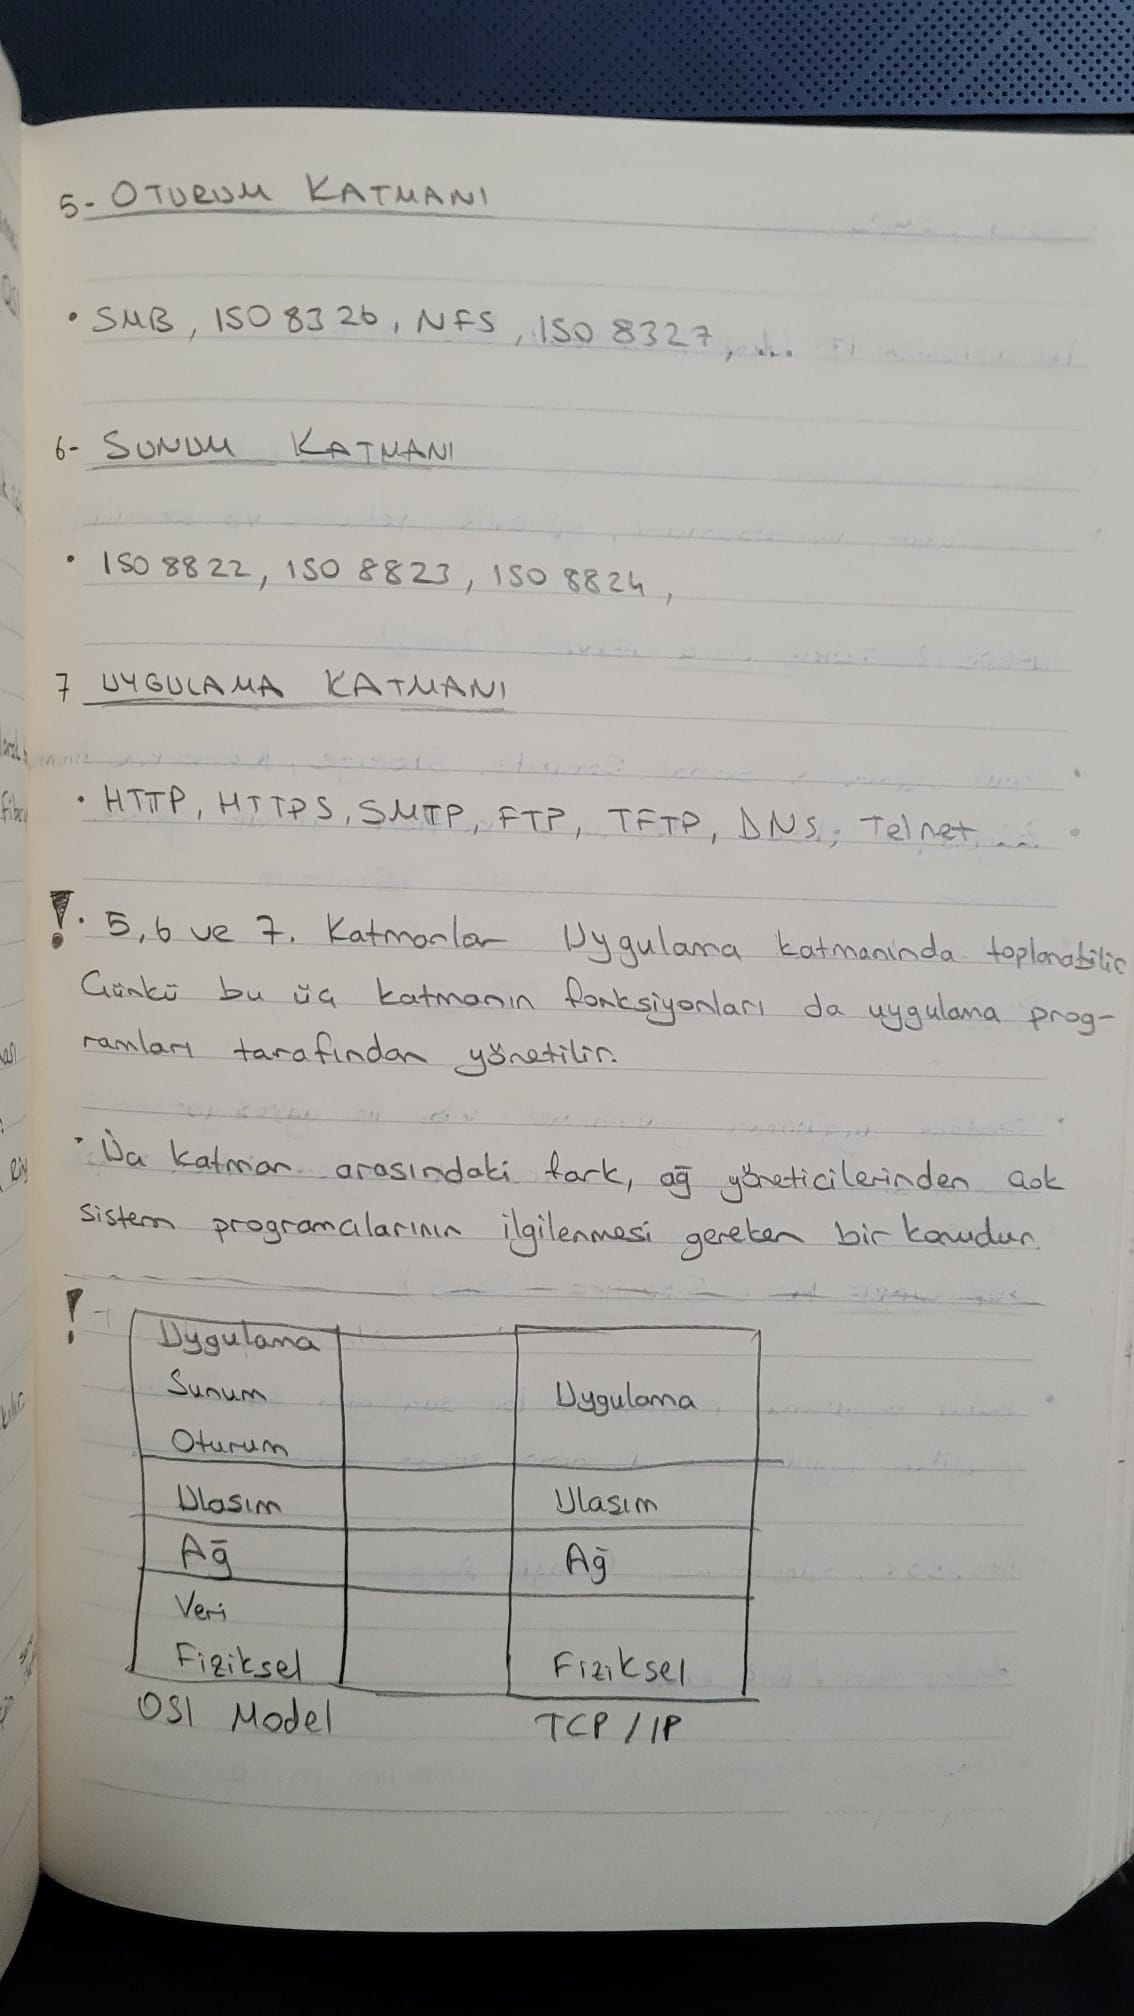 5- OTURUM KATMANI
• SMB, ISO 8326, NFS, ISO 8327, ...
6- SUNUM KATMANI
• ISO 8822, ISO 8823, ISO 8824,
7 UYGULAMA KATMANI
• HTTP, HTTPS, SMTP, FTP, TFTP, DNS, Telnet, ...
! • 5, 6 ve 7. Katmanlar Uygulama katmanında toplanabilir
Çünkü bu üç katmanın fonksiyonları da uygulama prog-
ramları tarafından yönetilir.
• Üç katman arasındaki fark, ağ yöneticilerinden çok
sistem programcılarının ilgilenmesi gereken bir konudur.
!
Uygulama
Sunum Uygulama
Oturum
Ulaşım Ulaşım
Ağ Ağ
Veri
Fiziksel Fiziksel
OSI Model TCP / IP